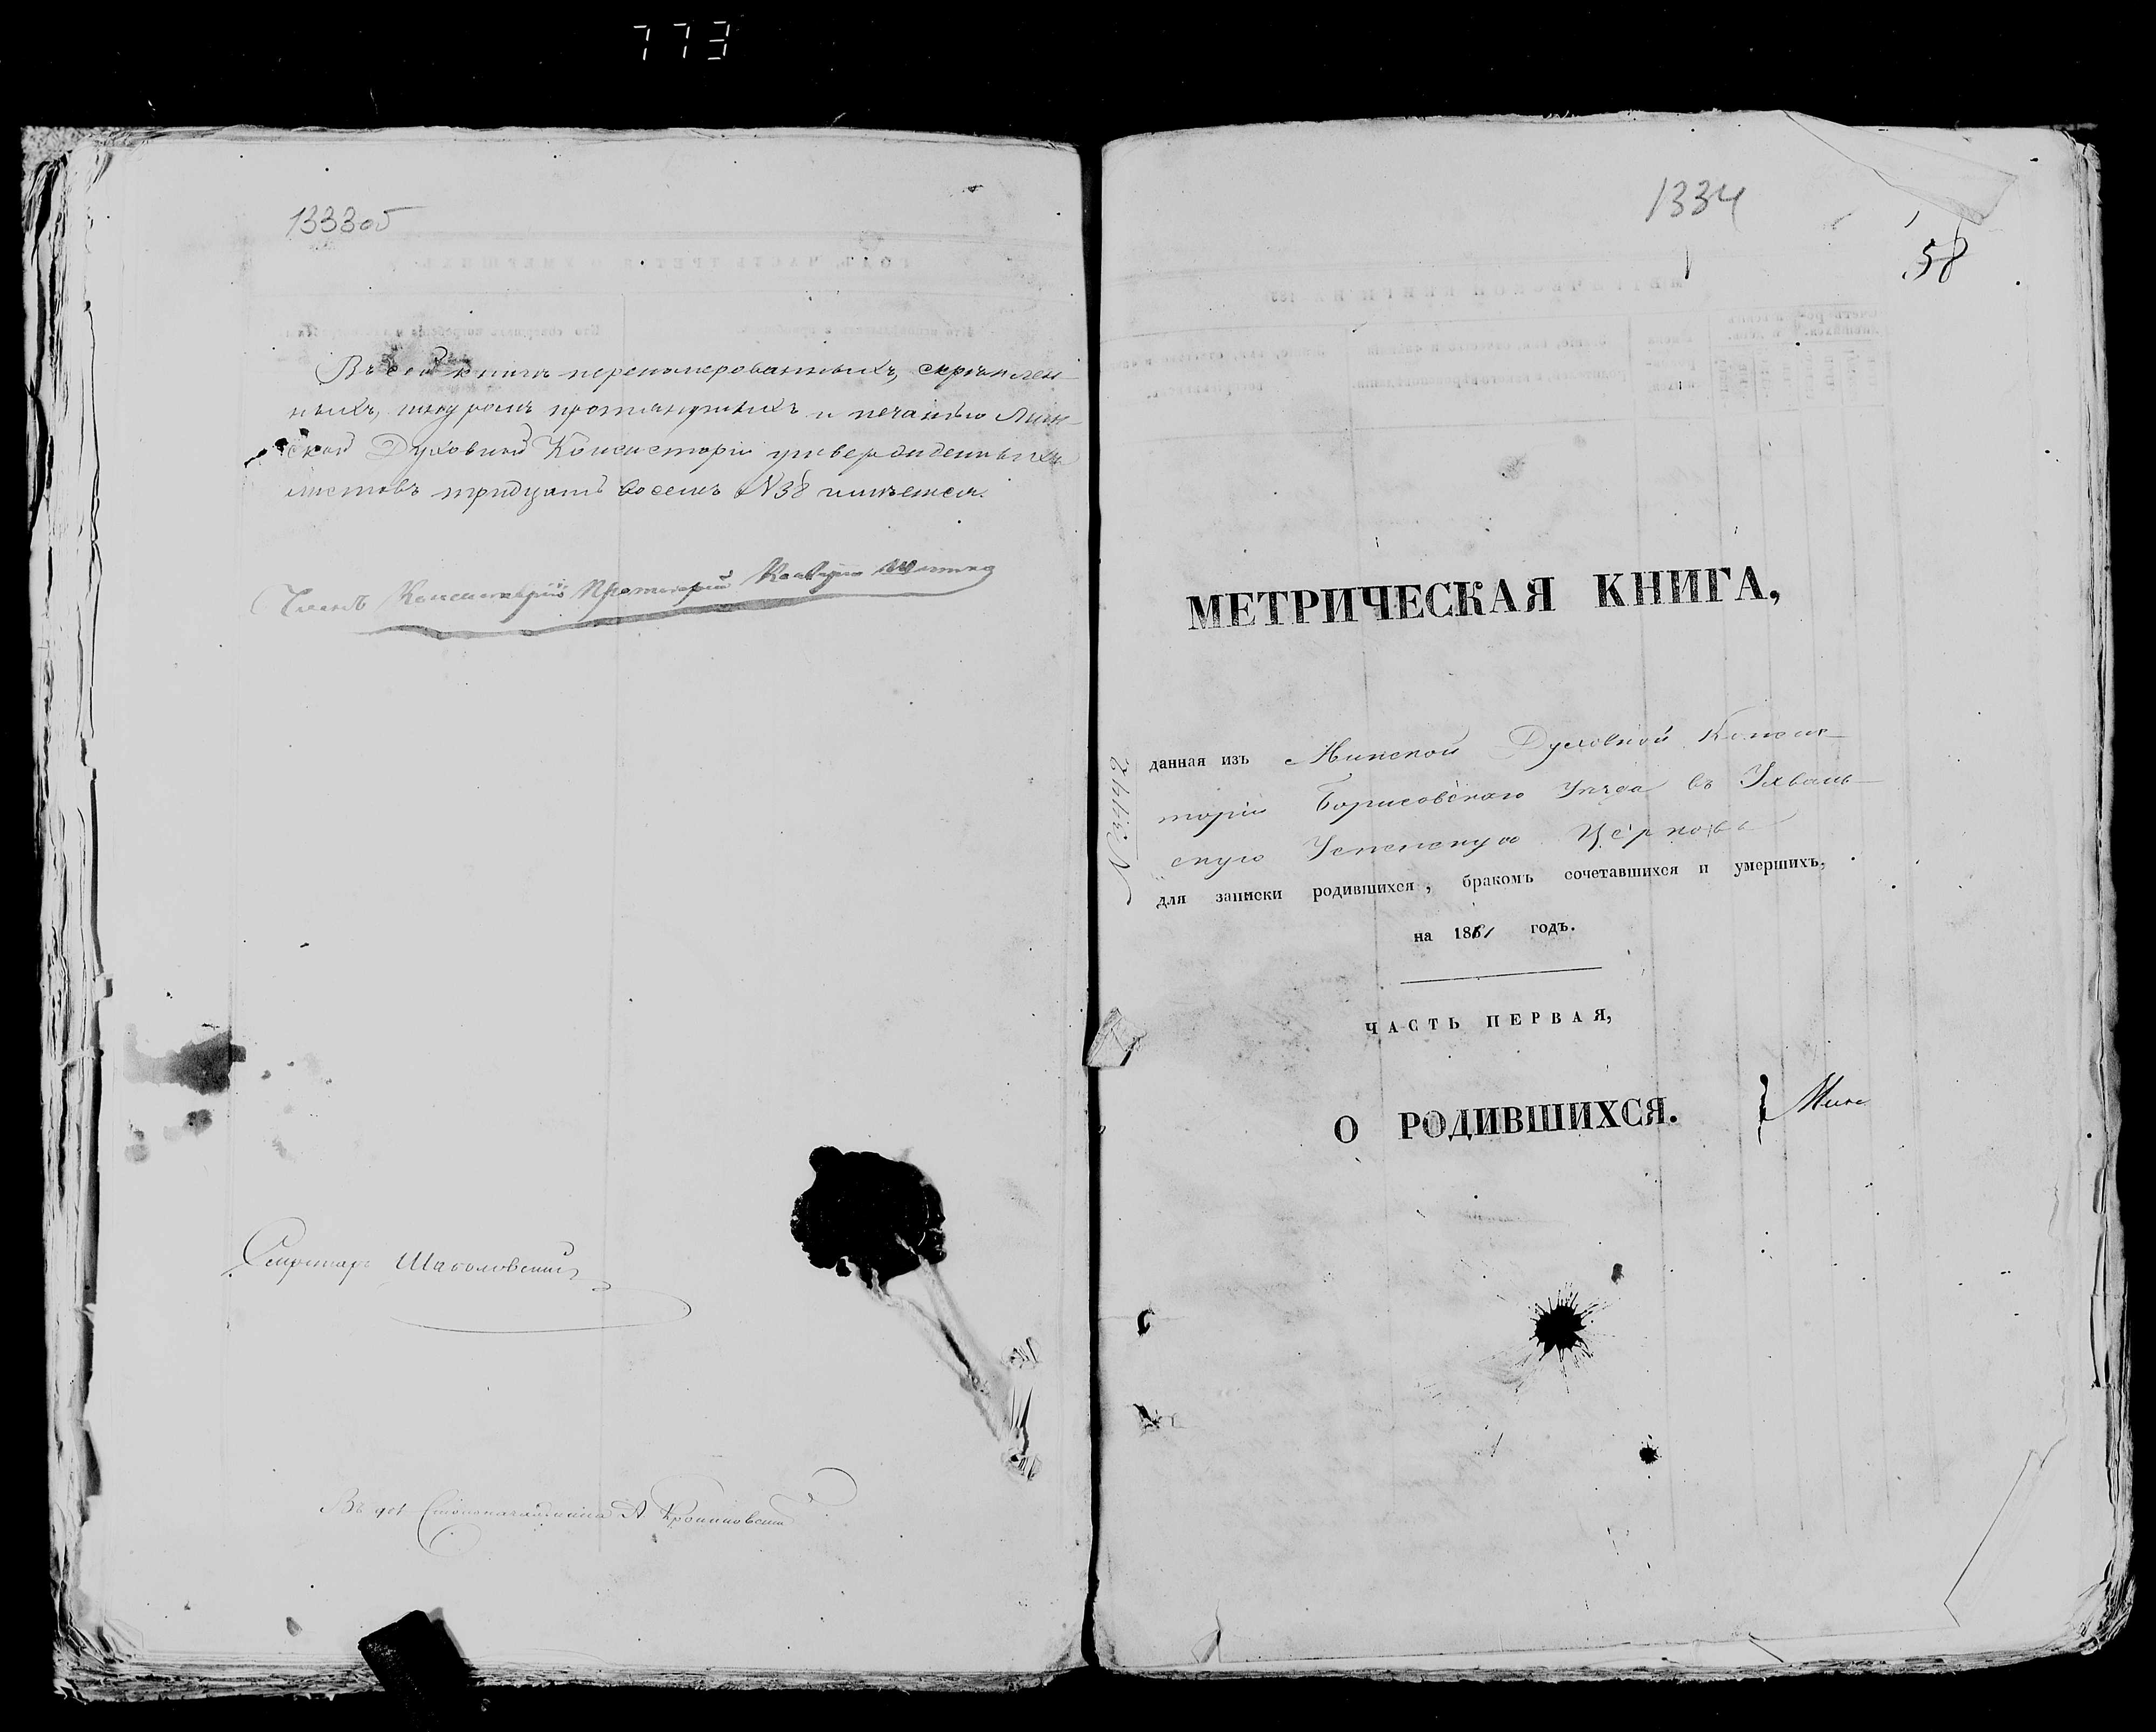 773
1333об
Въ сей книгѣ перенумерованныхъ, скрѣплен-
ныхъ, шнуромъ протянутыхъ и печатью Мин-
ской Духовной Консисторіи утвержденныхъ
листовъ тридцать восемь №38 имѣется.
Членъ Консисторіи Протоіерей
Секретарь
Столоначальника А
1334
58
МЕТРИЧЕСКАЯ КНИГА,
данная изъ Минской Духовной Консис-
торіи Борисовскаго Уѣзда въ Ухваль-
скую Успенскую Церковь
для записки родившихся, бракомъ сочетавшихся и умершихъ,
на 1861 годъ.
ЧАСТЬ ПЕРВАЯ,
О РОДИВШИХСЯ.
Минс